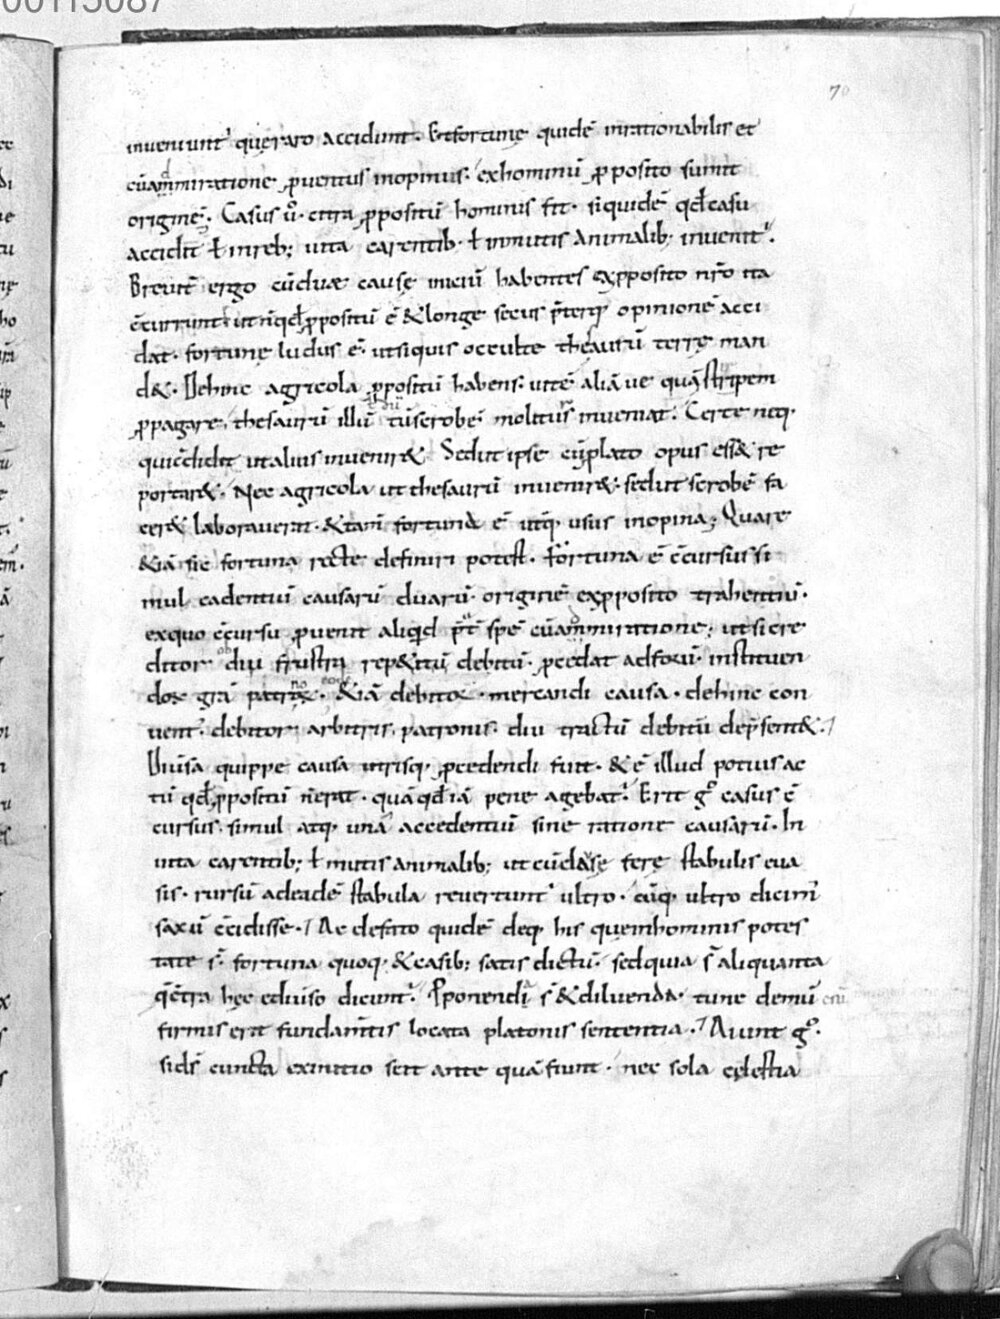 00115087
70
inueniunt᷑ quę raro accidunt. Et fortunę quidē inrationabilis et
cū ammiratione ꝓuentus inopinus. ex hominū ꝓposito sumit
originē. Casus ů. citra ꝓpositū hominis fit. siquidē qđ casu
accidit ł in reb; uita carentib. ł in mutis animalib; inuenit᷑.
Breuit̄ ergo cū duæ causę iniciū habentes ex ꝓposito nr̄o ita
c̄currunt ut n̄ qđ ꝓpositū ē & longe secus p̄terq; opinionē acci
dat. fortunę ludus ē. ut siquis occulte thesaurū terrę man
d&. Dehinc agricola ꝓpositū habens. uitē aliāue quā stirpem
ꝓpagare, thesaurū illū dū scrobē molitur inueniat. Certe neq;
qui c̄didit ut alius inuenir& Sed ut ipse cū placito opus ess& re
portar&. Nec agricola ut thesaurū inuenir&. sed ut scrobē fa
cer& laborauerit. & tam̄ fortuna ē utq; usus inopina; Quare
&iā sic fortuna recte definiri potest. Fortuna ē c̄cursus si
mul cadentiū causarū duarū. originē ex ꝓposito trahentiū.
ex quo c̄cursu ꝓuenit aliqđ p̄t spē cū ammiratione; ut si cre
ditor ob diu frustra rep&itū debitū. ꝓcedat ad forū. instituen
dor̄ grā patronor̄. &iā debitor. mercandi causa. dehinc con
uent᷑. debitor arbitris, patronis. diu tractū debitū dep̄sent&.
Diuisa quippe causa utrisq; ꝓcedendi fuit. & ē illud potius ac
tū qđ ꝓpositū n̄ erat. quā qđ iā pene agebat᷑. Erit gͦ casus c̄
cursus. simul atq; unā accedentiū sine ratione causarū. In
uita carentib; ł mutis animalib; ut cū dase fere stabulis eua
sis. rursū ad eadē stabula reuertunt᷑ ultro. cūq; ultro dicim᷑
saxū c̄cidisse. Ac de fato quidē deq; his quę in hominis potes
tate s̄. fortuna quoq. & casib; satis dictū. sed quia s̄ aliquanta
q̄ c̄tra hęc ediuiso dicunt᷑. Pponenda s̄ & diluenda. tunc demū enī
firmis erit fundam̄tis locata platonis sententia. Aiunt gͦ.
si ds̄ cuncta ex initio scit ante quā fiunt. nec sola cęlestia